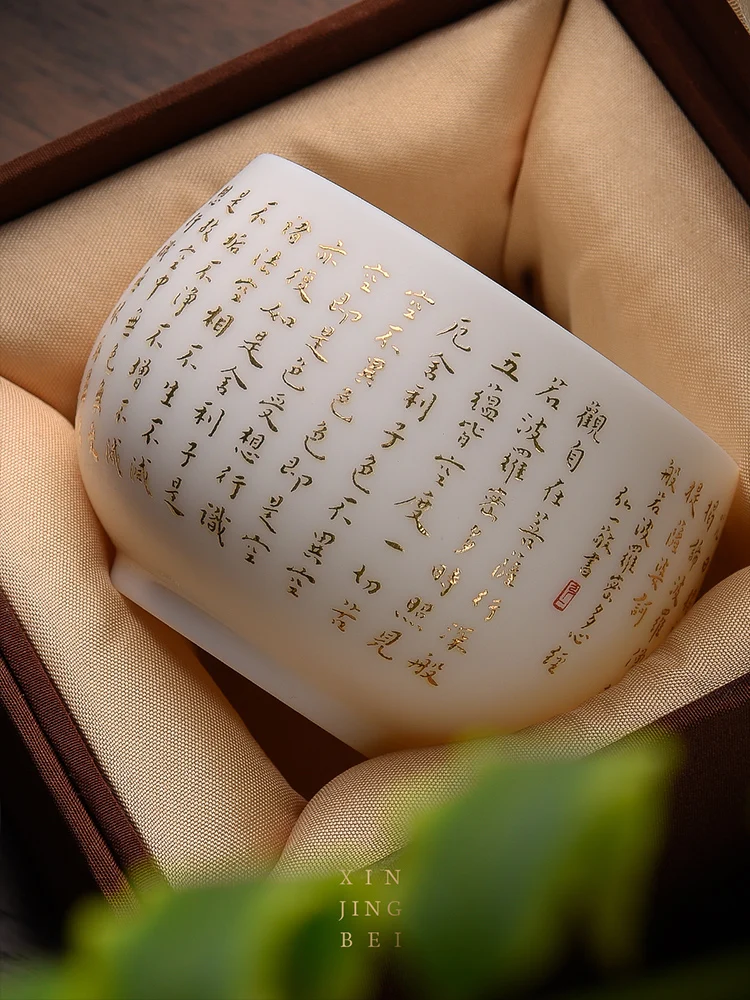 般若波羅蜜多心經
弘一敬書
觀自在菩薩行深般
若波羅蜜多時照見
五蘊皆空度一切苦
厄舍利子色不異空
空不異色色即是空
空即是色受想行識
亦復如是舍利子是
諸法空相不生不滅
不垢不淨不增不減
是故空中無色無受
XIN
JING
BEI